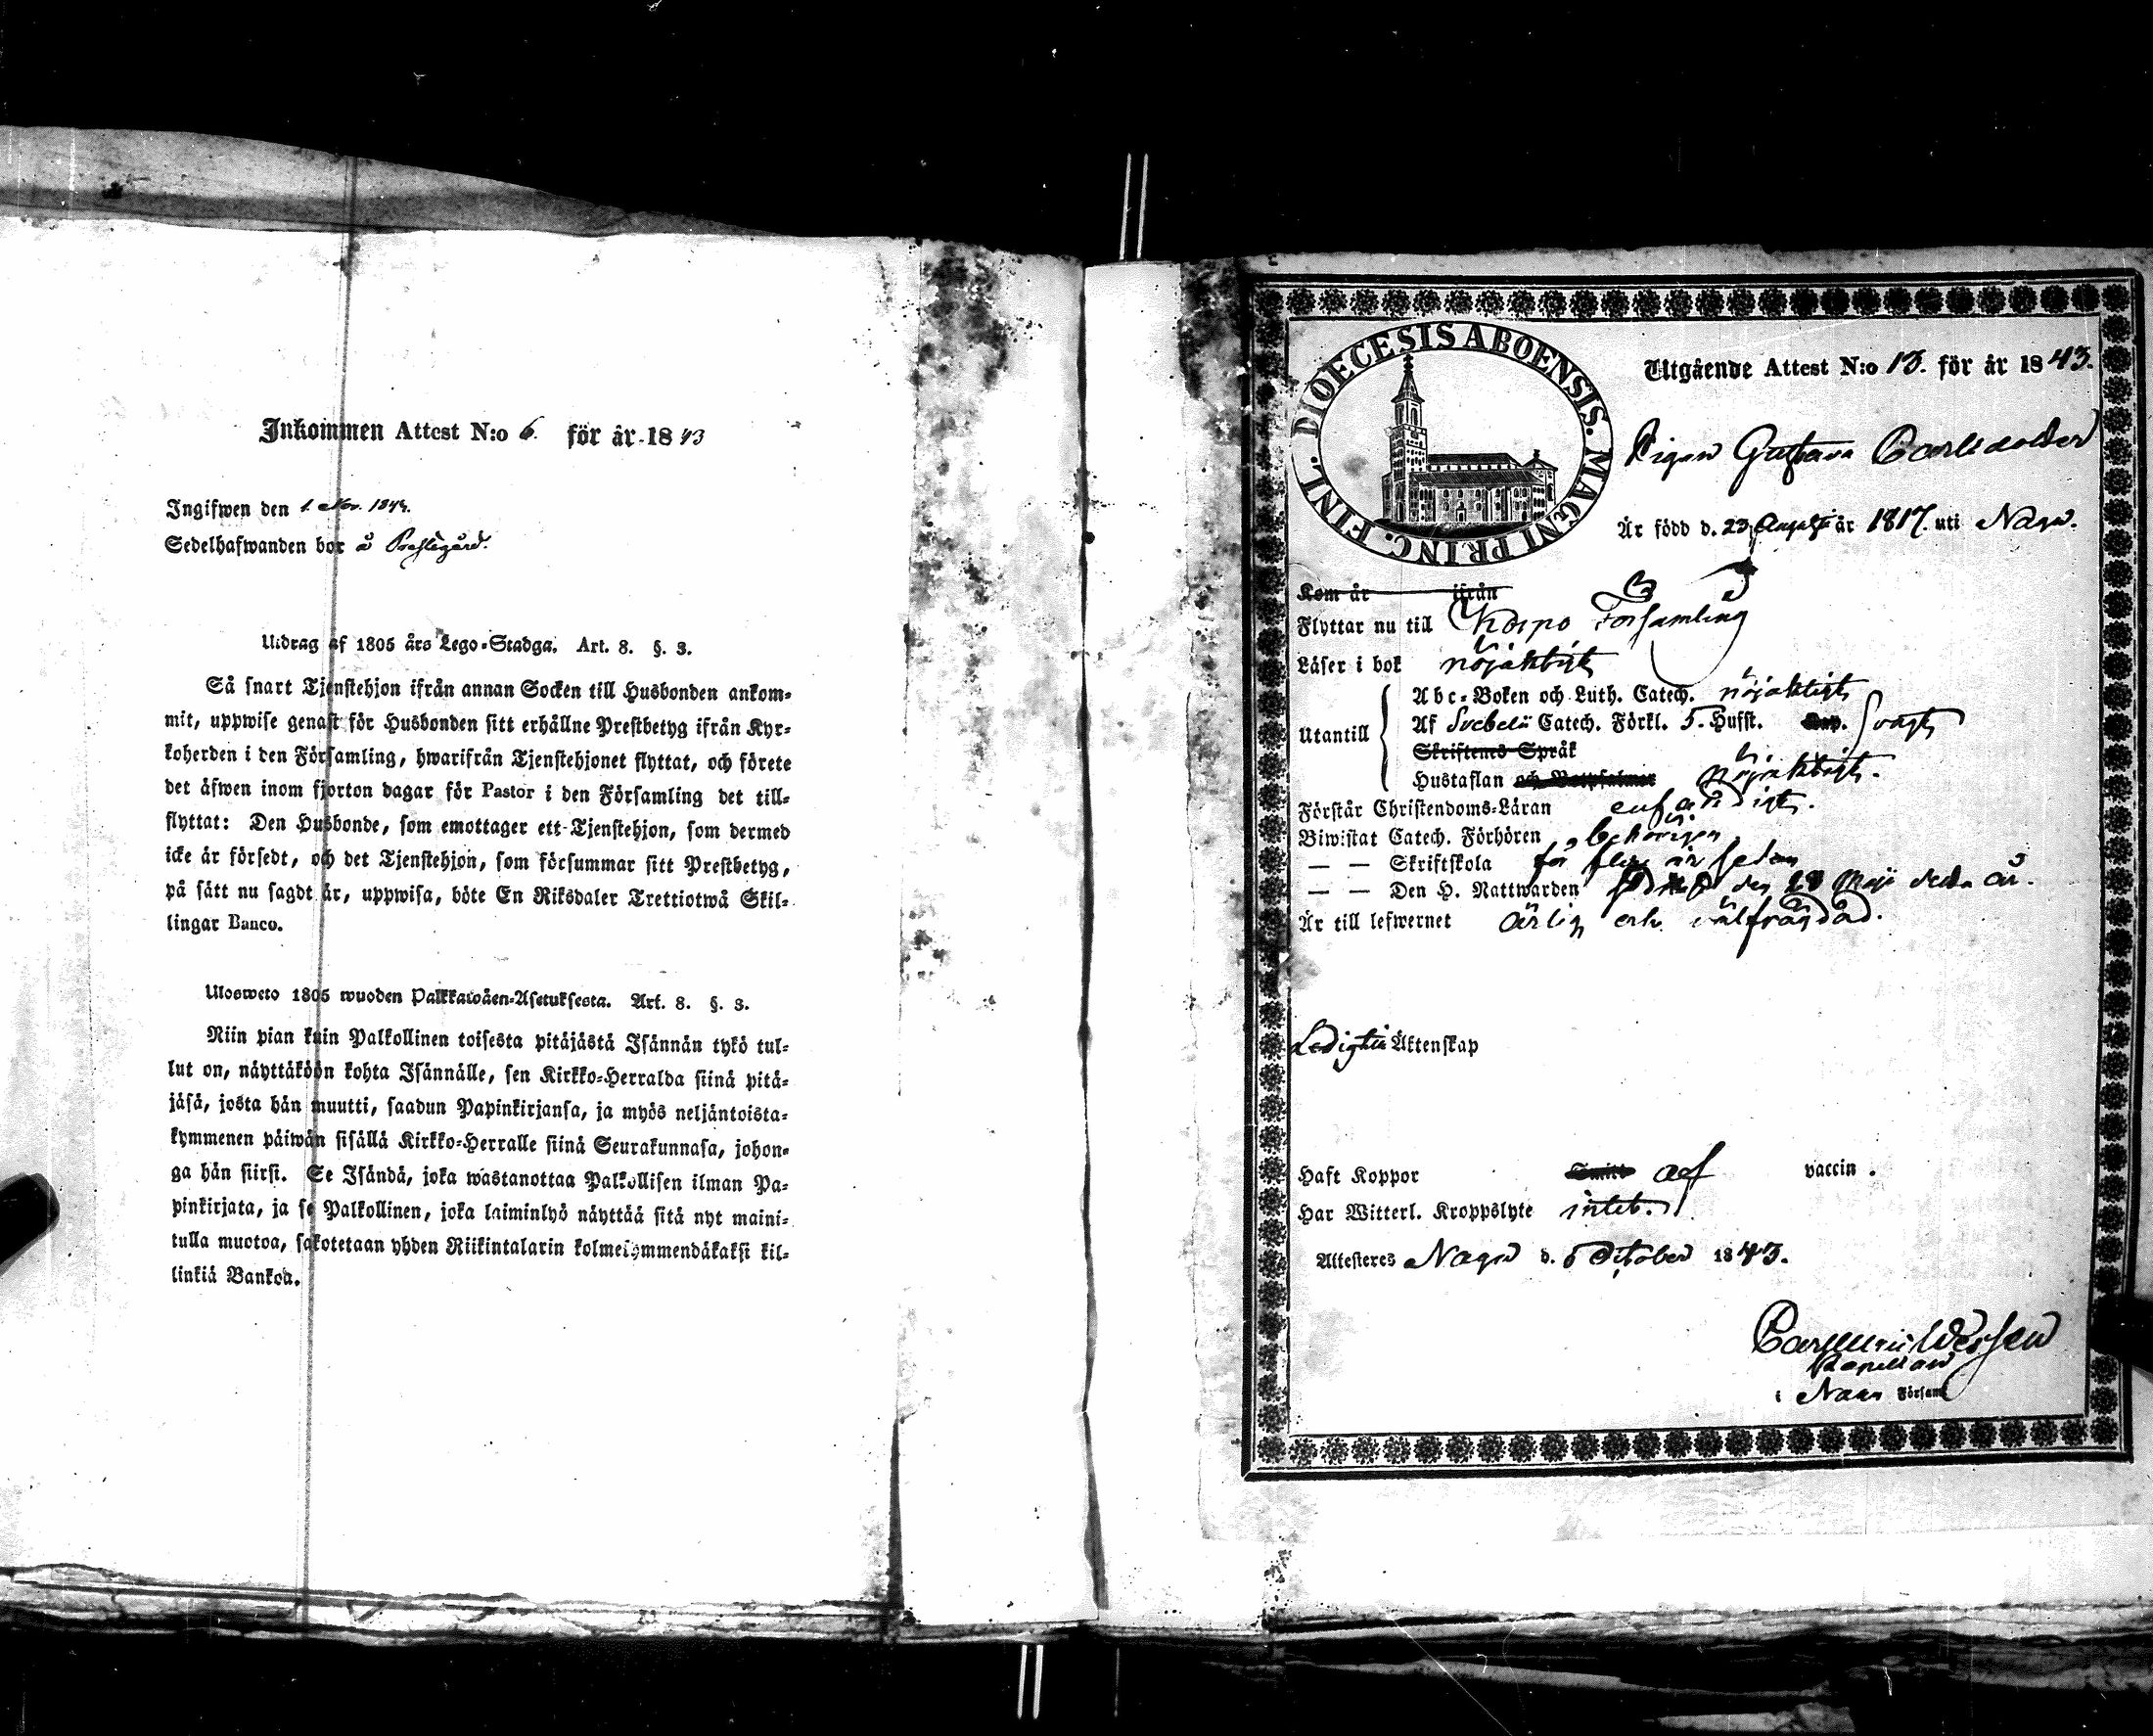 Inkommen Attest N:o 6. för år 1843
Ingifwen den 1. Nov. 1843.
Sedelhafwanden bor å Prestegård.
Utdrag af 1805 års Lego-Stadga. Art. 8. §. 3.
Så snart Tjenstehjon ifrån annan Socken till Husbonden ankom-
mit, uppwise genast för Husbonden sitt erhållne Prestbetyg ifrån Kyr-
koherden i den Församling, hwarifrån Tjenstehjonet flyttat, och förete
det äfwen inom fjorton dagar för Pastor i den Församling det till-
flyttat: Den Husbonde, som emottager ett Tjenstehjon, som dermed
icke är försedt, och det Tjenstehjon, som försummar sitt Prestbetyg,
på sätt nu sagdt är, uppwisa, böte En Riksdaler Trettiotwå Skil-
lingar Banco.
Ulosweto 1805 wuoden Palkkawäen-Asetuksesta. Art. 8. §. 3.
Niin pian kuin Palkollinen toisesta pitäjästä Isännän tykö tul-
lut on, näyttäköön kohta Isännälle, sen Kirkko-Herralda siinä pitä-
jäsä, josta hän muutti, saadun Papinkirjansa, ja myös neljäntoista-
kymmenen päiwän sisällä Kirkko-Herralle siinä Seurakunnasa, johon-
ga hän siirsi. Se Isändä, joka wastanottaa Palkollisen ilman Pa-
pinkirjata, ja se Palkollinen, joka laiminlyö näyttää sitä nyt maini-
tulla muotoa, sakotetaan yhden Riikintalarin kolmekymmendäkaksi kil-
linkiä Bankoa.
DIOECESIS ABOENSIS. MAGNI PRINC. FINL.
Utgående Attest N:o 13. för år 1843.
Pigan Gustava Carlsdotter
Är född d. 23 Augusti år 1817. uti Nagu.
Kom år ifrån
Flyttar nu till Korpo Församling
Läser i bok nöjaktigt
Utantill
Abc-Boken och Luth. Catech. nöjaktigt
Af Svebelii Catech. Förkl. 5. Hufst. svagt
Skriftenes Språk
Hustaflan och Botpsalmer nöjaktigt.
Förstår Christendoms-Läran enfaldigt.
Biwistat Catech. Förhören behörigen
— — Skriftskola för flere år sedan
— — Den H. Nattwarden sednast den 28 Maji detta år.
Är till lefwernet ärlig och välfrägdad.
Ledig till Äktenskap
Haft Koppor af vaccin.
Har Witterl. Kroppslyte intet.
Attesteres Nagu d. 6 October 1843.
Kapellan
i Nagu Församl